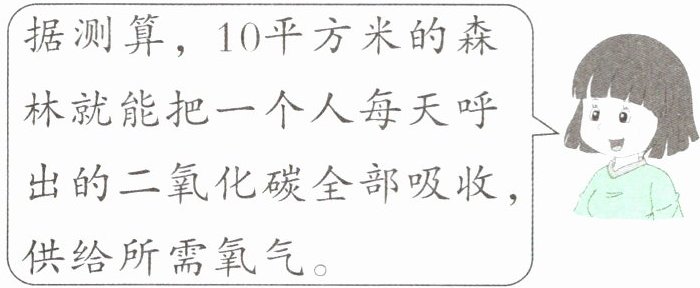 据测算，10平方米的森
林就能把一个人每天呼
出的二氧化碳全部吸收，
供给所需氧气。